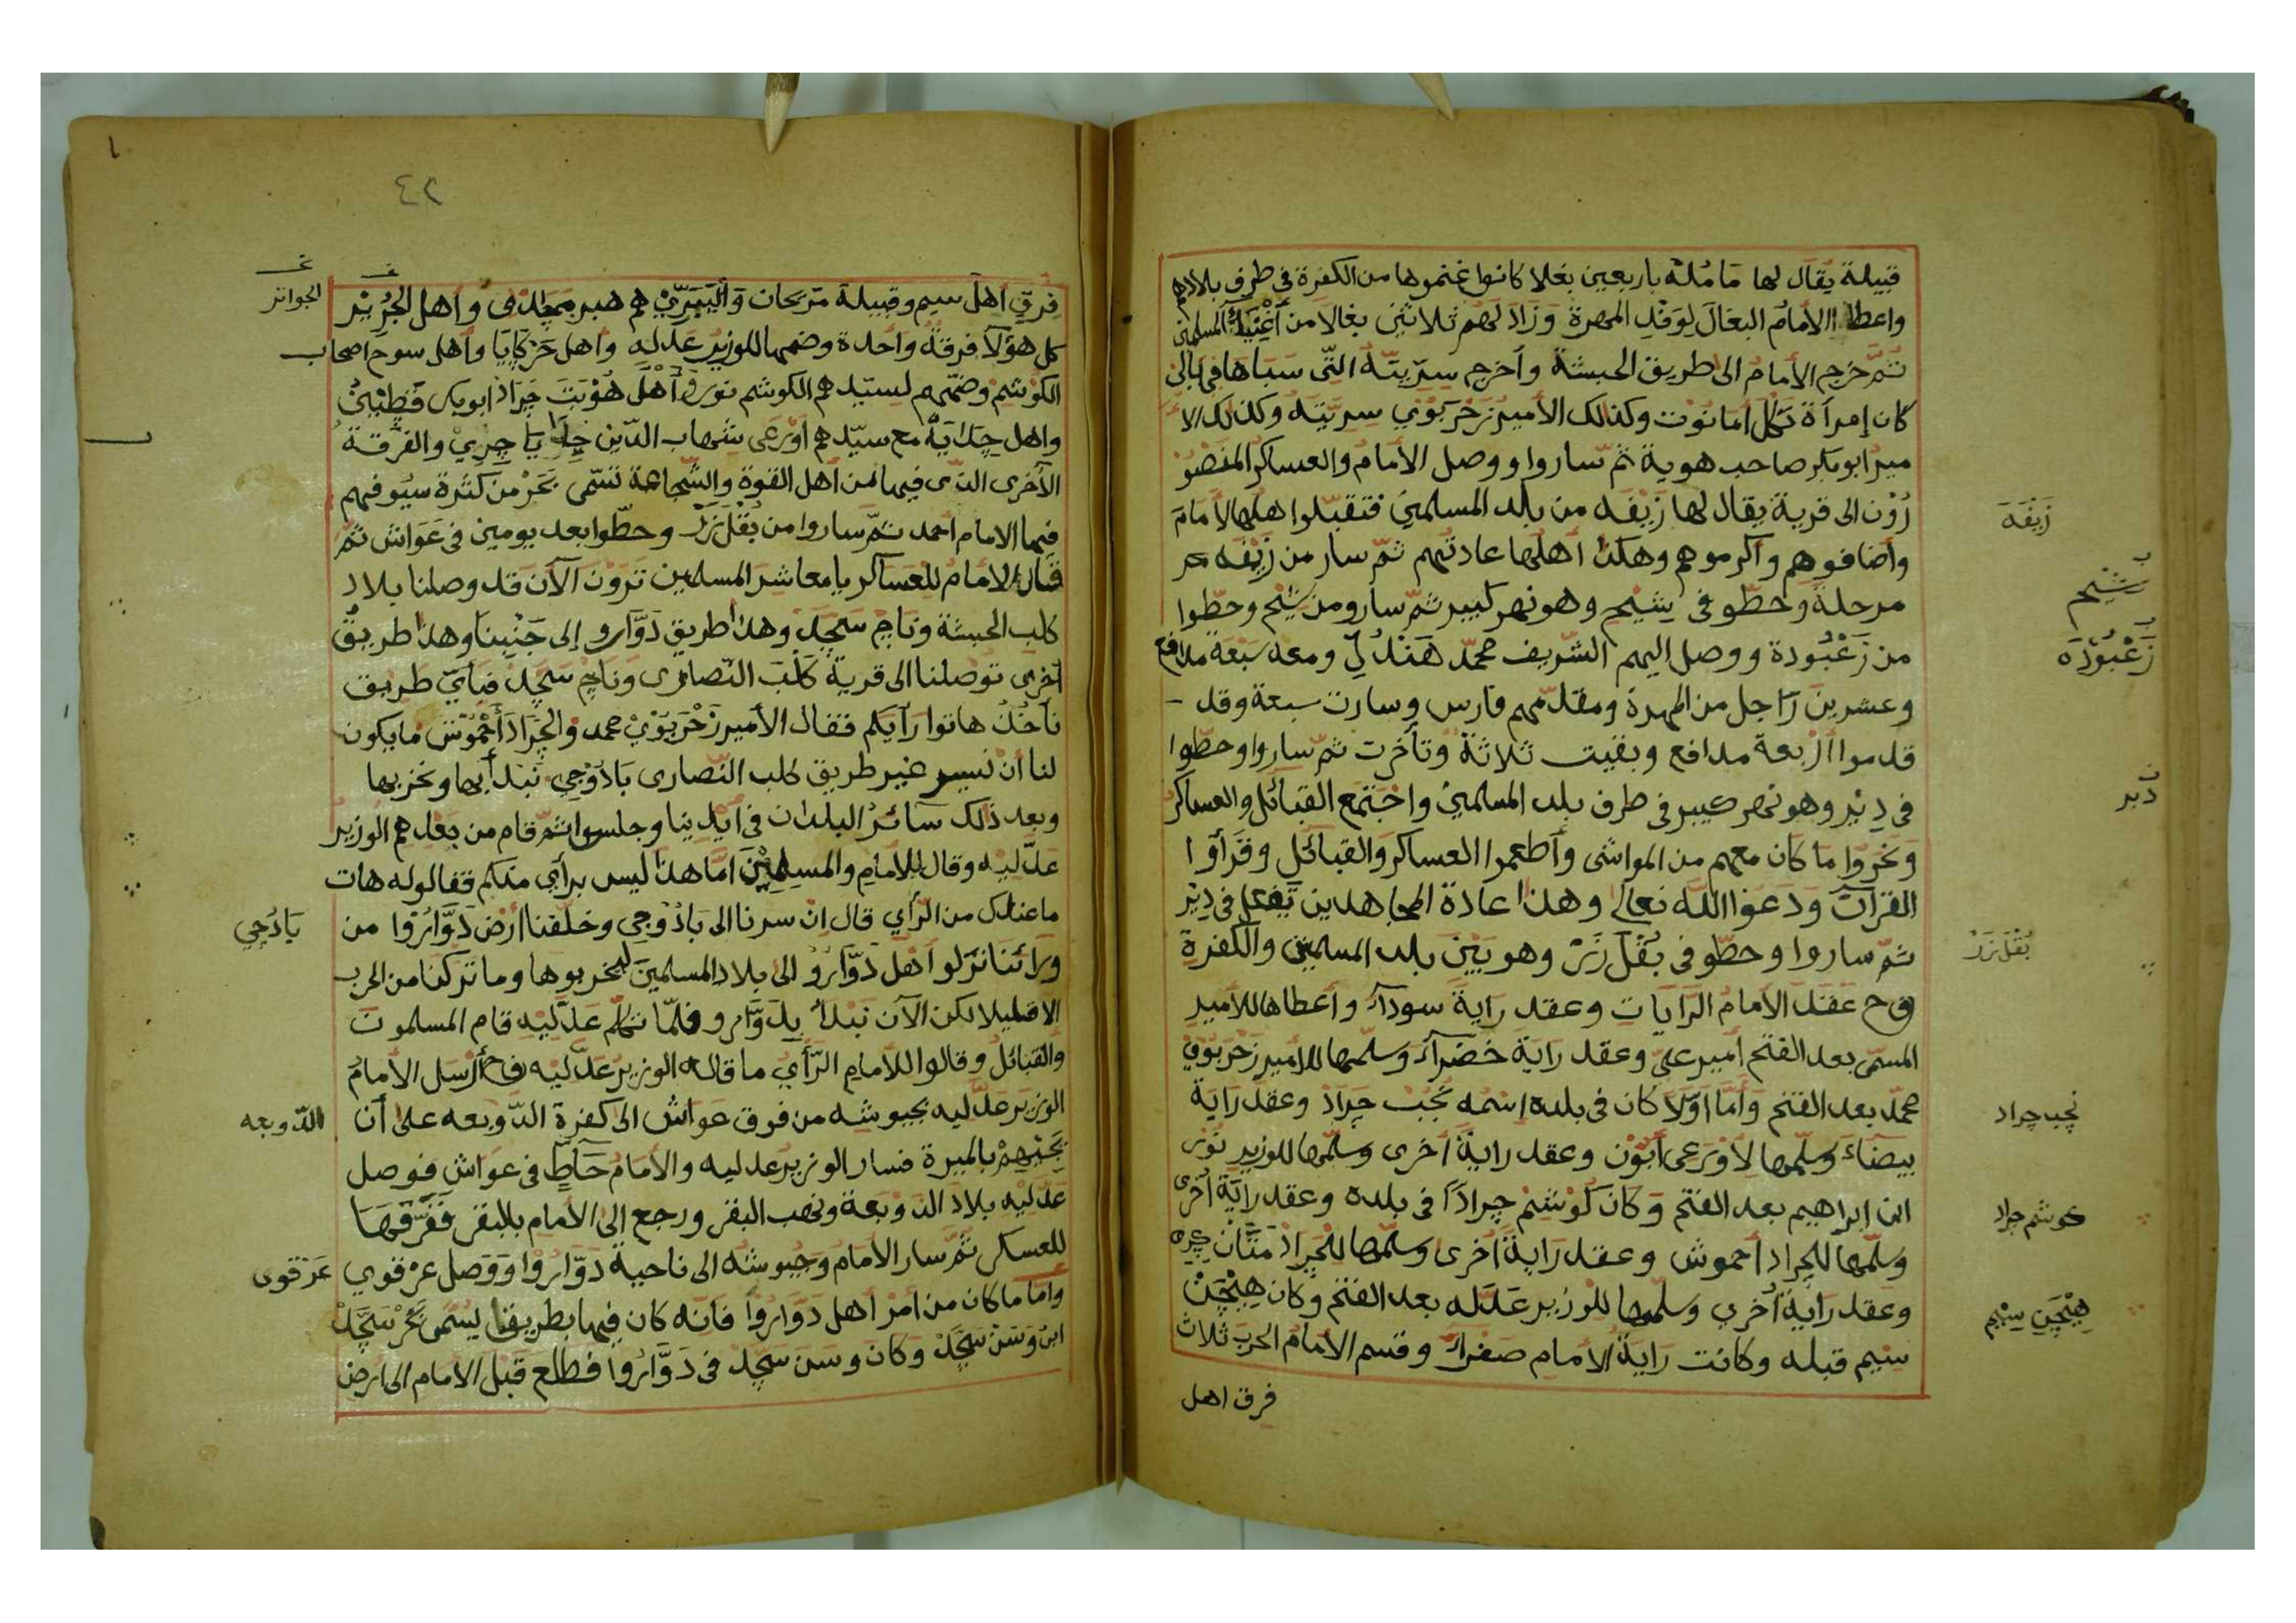 قبيلة يقال لها مَا مُلَه باربعين بغلا كانوا غنموها من الكفرة في طرف بلادهم
واعطا الامام البغال لوفد المهرة وزاد لهم ثلاثين بغالا من أغنياء المسلمين
ثم خرج الأمام الى طريق الحبشة وأخرج سريته التي سباها في بالي
كان إمرأة تكل امانوت وكذلك الأمير زحربوي سريته وكذلك الا
مير ابوبكر صاحب هوية ثم ساروا ووصل الأمام والعساكر المنصو
رُوْن الى قرية يقال لها زَيْفَه من بلد المسلمين فتقبلوا هلها الامام
وأضافوهم وأكرموهم وهكذا أهلها عادتهم ثم سار من زَيْفَه
مرحلة وحطو في شيْحم وهو نهر كبير ثم سارو من وحطوا
من زَعْبُودة ووصل اليهم الشريف محمد هَنْدُلِي ومعه سبعة مدافع
وعشرين راجل من المهرة ومقدمهم فارس وسارت سبعة وقد
قدموا أربعة مدافع وبقيت ثلاثة وتأخرت ثم ساروا وحطوا
في دِيْر وهو نهر كبير في طرف بلد المسلمين واجتمع القبائل والعساكر
ونحروا ما كان معهم من المواشى وأطعموا العساكر والقبائل وقرأوا
القرآن ودعوا الله تعالى وهذا عادة المجاهدين تفعل في دِيْر
ثم ساروا وحطو في بُقْل زَرْ وهو بين بلد المسلمين والكفرة
ف ح عقد الامام الرايات وعقد راية سودآء وأعطاها للأمير
المسمى بعد الفتح أمير علي وعقد راية خضرآء وسلمها للامير زحربوي
محمد بعد الفتح وأما اوّلا كان في بلده اسمه نجب جراد وعقد راية
بيضاء وسلمها لأورعى أبُوْن وعقد راية اخرى وسلمها للوزير نور
ابن ابراهيم بعد الفتح وكان كوشم جراداً في بلده وعقد راية أخرى
وسلمها للجراد أحموش وعقد راية اخرى وسلمها للجراد مَتّان
وعقد راية أخرى وسلمها للوزير عَدَله بعد الفتح وكان هِيْجَن
سيم قبله وكانت راية الأمام صفراء وقسم الامام الحرب ثلاث
فرق اهل
زَيْفَه
زَعْبُوْدَه
دير
بقل زر
نجب جراد
كوشم جراد
هيجن سيم
٤٢
فِرق أهل سيم وقبيلة مَرَيحان هم هبر مَجَلدى وأهل الجُرِيْر
كل هؤلآ فرقة واحدة وضمها للوزير عدله وأهل حَرْكَايَا وأهل سوح اصحاب
الكوشم وضمهم لسيدهم الكوشم نور وأهل هُوْبَتَ جَراد ابوبكر قَطِيْنْ
واهل جداية مع سيدهم اورعى شهاب الدين والفرقة
الأخرى التى فيها من أهل القوة والشجاعة تسمى بحر من كثرة سيوفهم
فيها الامام أحمد ثم ساروا من بُقل زر وحطوا بعد يومين في عَوَاش ثم
قال الامام للعساكر يا معاشر المسلمين ترون الآن قد وصلنا بلاد
كلب الحبشة وناج سَجَد وهذا طريق دَوّارو إلى جَنْبِنا وهذا طريق
أخرى توصلنا الى قرية كلب النصارى وناج سَجَد فبأي طريق
نأخذ هاتوا رأيكم فقال الأمير زَحْرَبَوْي محمد والجراد أحْمُوْش ما يكون
لنا أن نسير غير طريق كلب النصارى بَادُوجي نبدأ بها ونخربها
وبعد ذلك سآئر البلدان في أيدينا وجلسوا ثم قام من بعدهم الوزير
عدليه وقال للأمام والمسلمين امّا هذا ليس برأي منكم فقالوا له هات
ما عندك من الرأي قال ان سرنا الى بَادُوجي وخلفنا أرض دَوّارُوا من
ورائنا نزلوا أهل دَوّارو الى بلاد المسلمين ليخربوها وما تركنا من الحرب
الا قليلا لكن الآن نبدأ بدَوّارو فلما تكلم عدليه قام المسلمون
والقبائل وقالوا للأمام الرأي ما قاله الوزير عدليه ف ح أرسل الأمام
الوزير عدليه بجيوشه من فوق عواش الى كفرة الدّوبعه على أن
بالميرة فسار الوزير عدليه والأمام حَاطٍّ في عواش فوصل
عدليه بلاد الدوبعة ونهب البقر ورجع إلى الأمام بالبقر ففرقها
للعسكر ثم سار الامام وجيوشه الى ناحية دَوّارُوا ووصل عرقوي
وأما ما كان من أمر أهل دَوارُوا فانه كان فيها بطريقا يسمى بحر سَجَد
ابن وَسَن سَجَد وكان وسن سجد في دَوّارُوا فطلع قبل الامام الى ارض
الجواتر
بَادُجِي
الدّوبعه
عرقوى